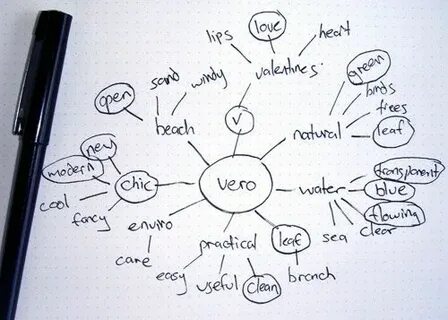 lips
love
heart
sand
windy
valentines
green
open
birds
trees
beach
v
natural
leaf
new
modern
transparent
chic
vero
water
blue
cool
flowing
fancy
enviro
leaf
clear
practical
sea
care
easy
useful
clean
branch